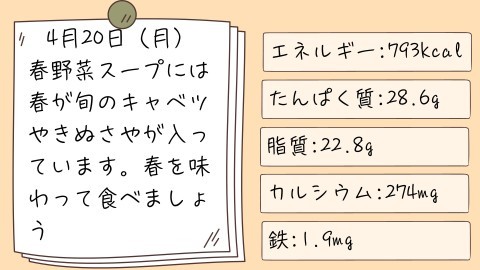 4月20日（月）
春野菜スープには
春が旬のキャベツ
やきぬさやが入っ
ています。春を味
わって食べましょ
う
エネルギー:793kcal
たんぱく質:28.6g
脂質:22.8g
カルシウム:274mg
鉄:1.9mg